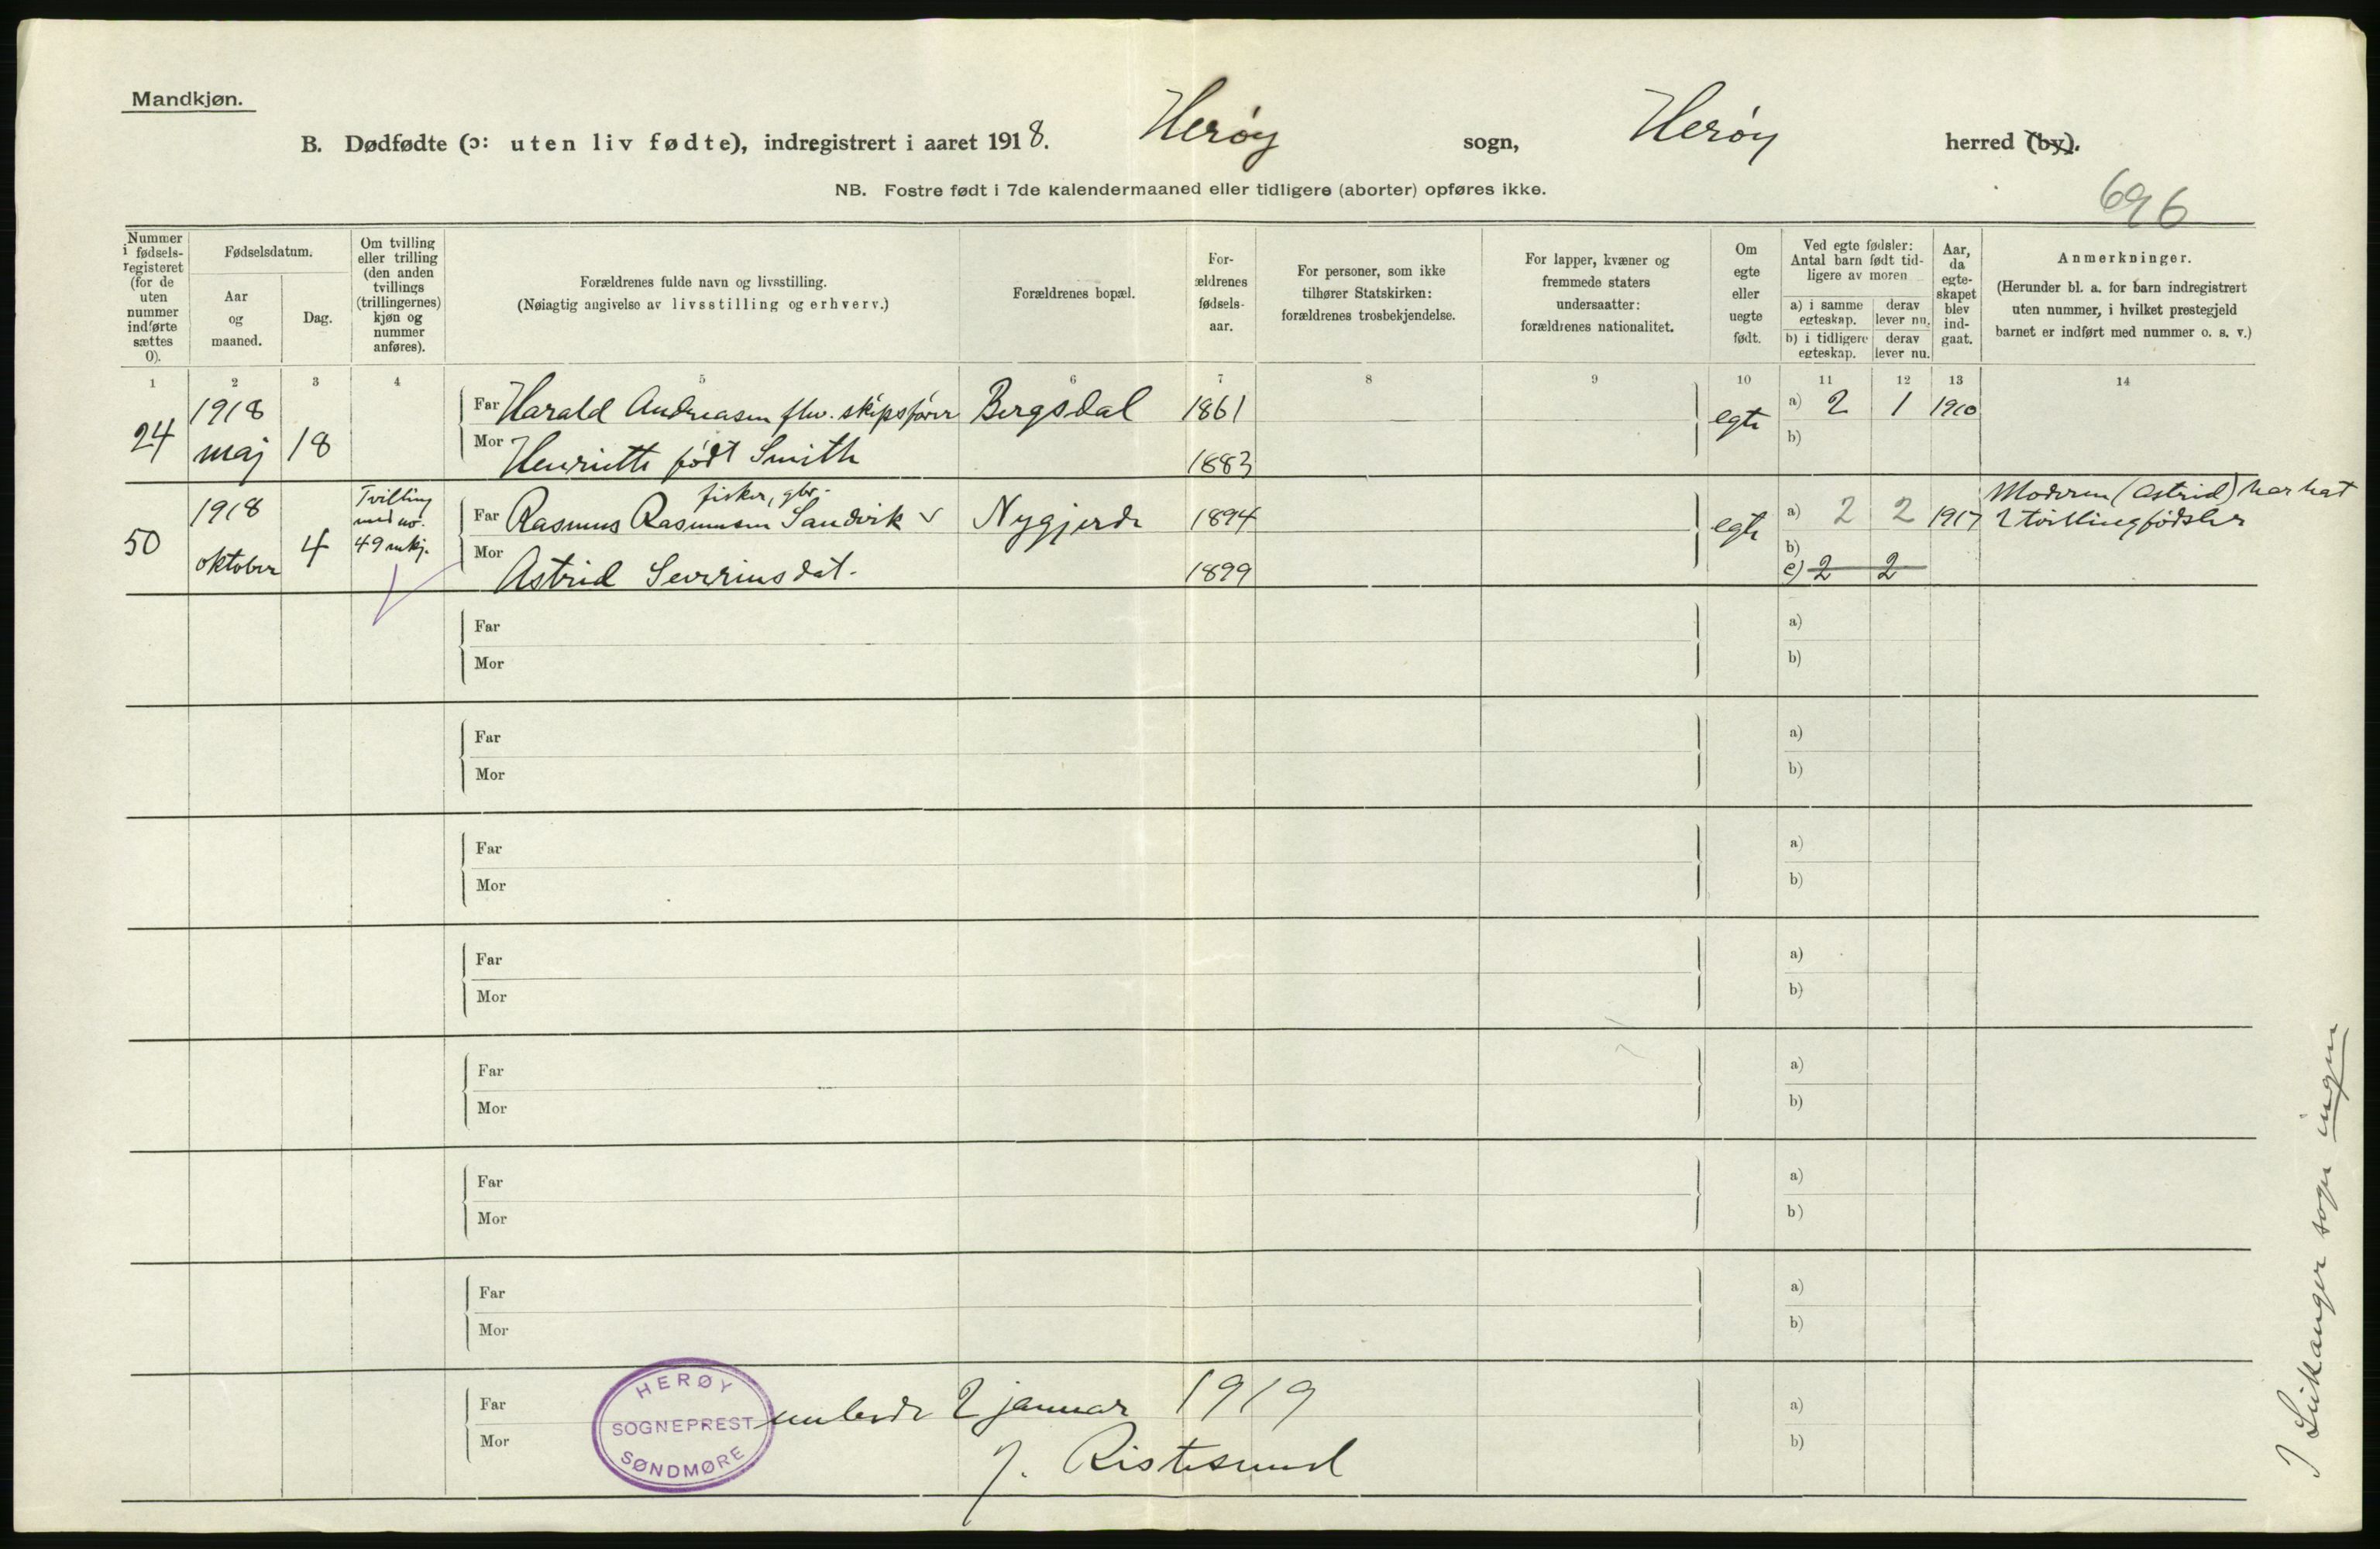 Mandkjøn.
B. Dødfødte (ɔ: uten liv fødte), indregistrert i aaret 1918. Herøy sogn, Herøy herred (by).
NB. Fostre født i 7de kalendermaaned eller tidligere (aborter) opføres ikke.
696
Nummer i fødsels-registeret (for de uten nummer indførte sættes 0).
Fødselsdatum.
Aar og maaned.
Dag.
Om tvilling eller trilling (den anden tvillings (trillingernes) kjøn og nummer anføres).
Forældrenes fulde navn og livsstilling.
(Nøiagtig angivelse av livsstilling og erhverv.)
Forældrenes bopæl.
For-ældrenes fødsels-aar.
For personer, som ikke tilhører Statskirken: forældrenes trosbekjendelse.
For lapper, kvæner og fremmede staters undersaatter: forældrenes nationalitet.
Om egte eller uegte født.
Ved egte fødsler: Antal barn født tid-ligere av moren
a) i samme egteskap. derav lever nu.
b) i tidligere egteskap. derav lever nu.
Aar, da egte-skapet blev ind-gaat.
Anmerkninger.
(Herunder bl. a. for barn indregistrert uten nummer, i hvilket prestegjeld barnet er indført med nummer o. s. v.)
1 2 3 4 5 6 7 8 9 10 11 12 13 14
24 1918 maj 18
Far Harald Andreasen fhv. skipsfører Bergsdal 1861 egte a) 2 1 1910
Mor Henriette født Smith 1883 b)
50 1918 oktober 4 Tvilling med no. 49 mkj.
fisker, gbr.
Far Rasmus Rasmussen Sandvik Nygjerde 1894 egte a) 2 2 1917 Moderen (Astrid) har hat 2 tvillingfødsler
Mor Astrid Severinsdat. 1899 b)
c) 2 2
Far a)
Mor b)
Far a)
Mor b)
Far a)
Mor b)
Far a)
Mor b)
Far a)
Mor b)
Far a)
Mor b)
Far a)
Mor b)
Far a)
Mor b)
HERØY
SOGNEPREST
SØNDMØRE
2 januar 1919
J. Ristesund
I Leikanger sogn ingen